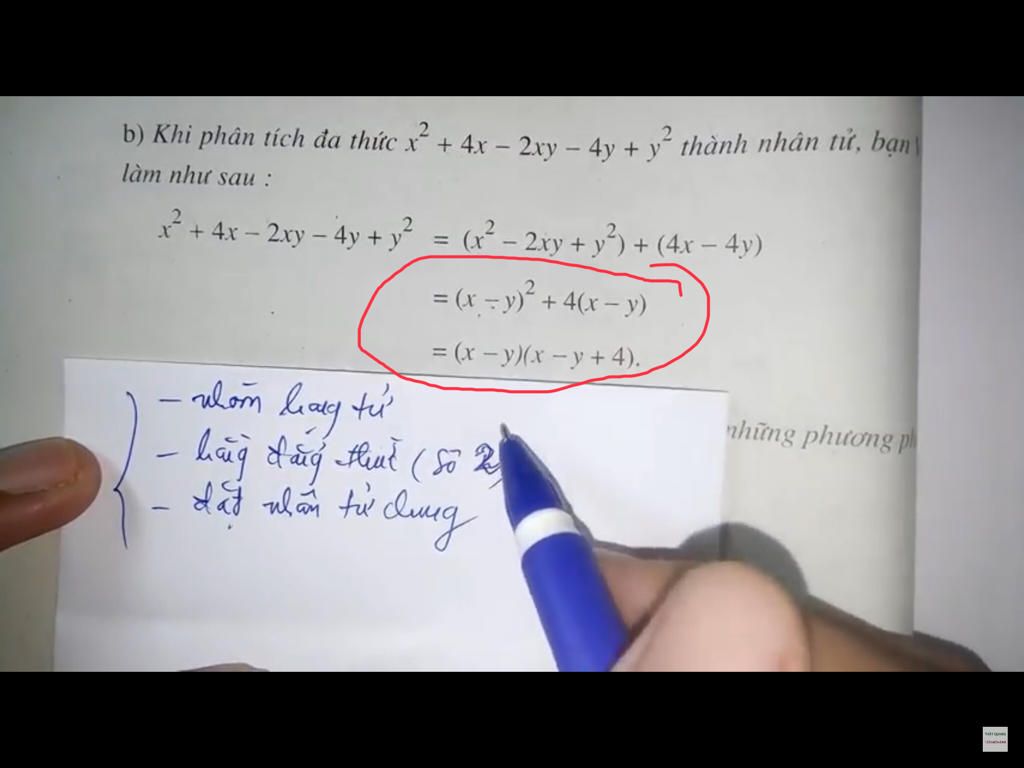 b) Khi phân tích đa thức x² + 4x − 2xy − 4y + y² thành nhân tử, bạn
làm như sau :
x² + 4x − 2xy − 4y + y² = (x² − 2xy + y²) + (4x − 4y)
= (x − y)² + 4(x − y)
= (x − y)(x − y + 4).
những phương
− nhóm hạng tử
− hằng đẳng thức (số 2
− đặt nhân tử chung